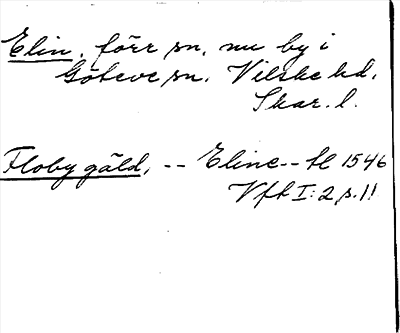 Elin, förr sn, nu by i
Göteve sn, Vilske hd,
Skar. l.
Floby gäld, -- Eline -- tl 1546
Vft I:2 s. 11